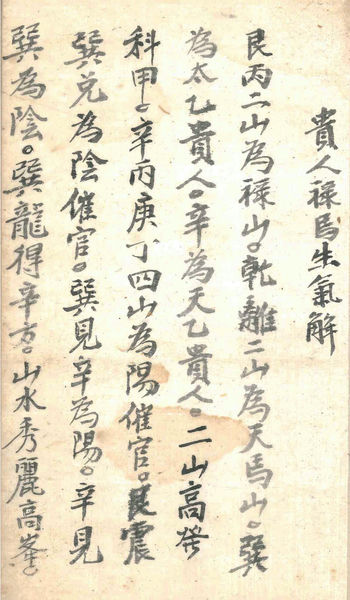 貴人祿馬生氣解
艮丙二山為祿山。乾離二山為天馬山。巽
為太乙貴人。辛為天乙貴人。二山高發
科甲。辛丙庚丁四山為陽催官。艮震
巽兌為陰催官。巽見辛為陽。辛見
巽為陰。巽龍得辛方。山水秀麗高峯。